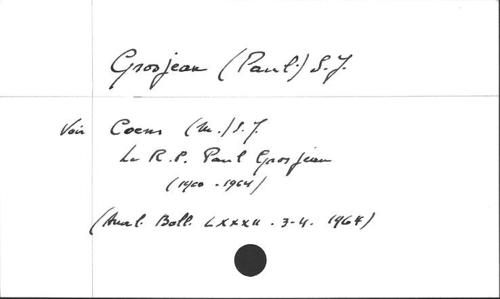 Grosjean (Paul) S.J.
Voir Coens (M.) S.J.
Le R.P. Paul Grosjean
(1900 - 1964)
(Anal. Boll. LXXXII - 3-4. 1964)